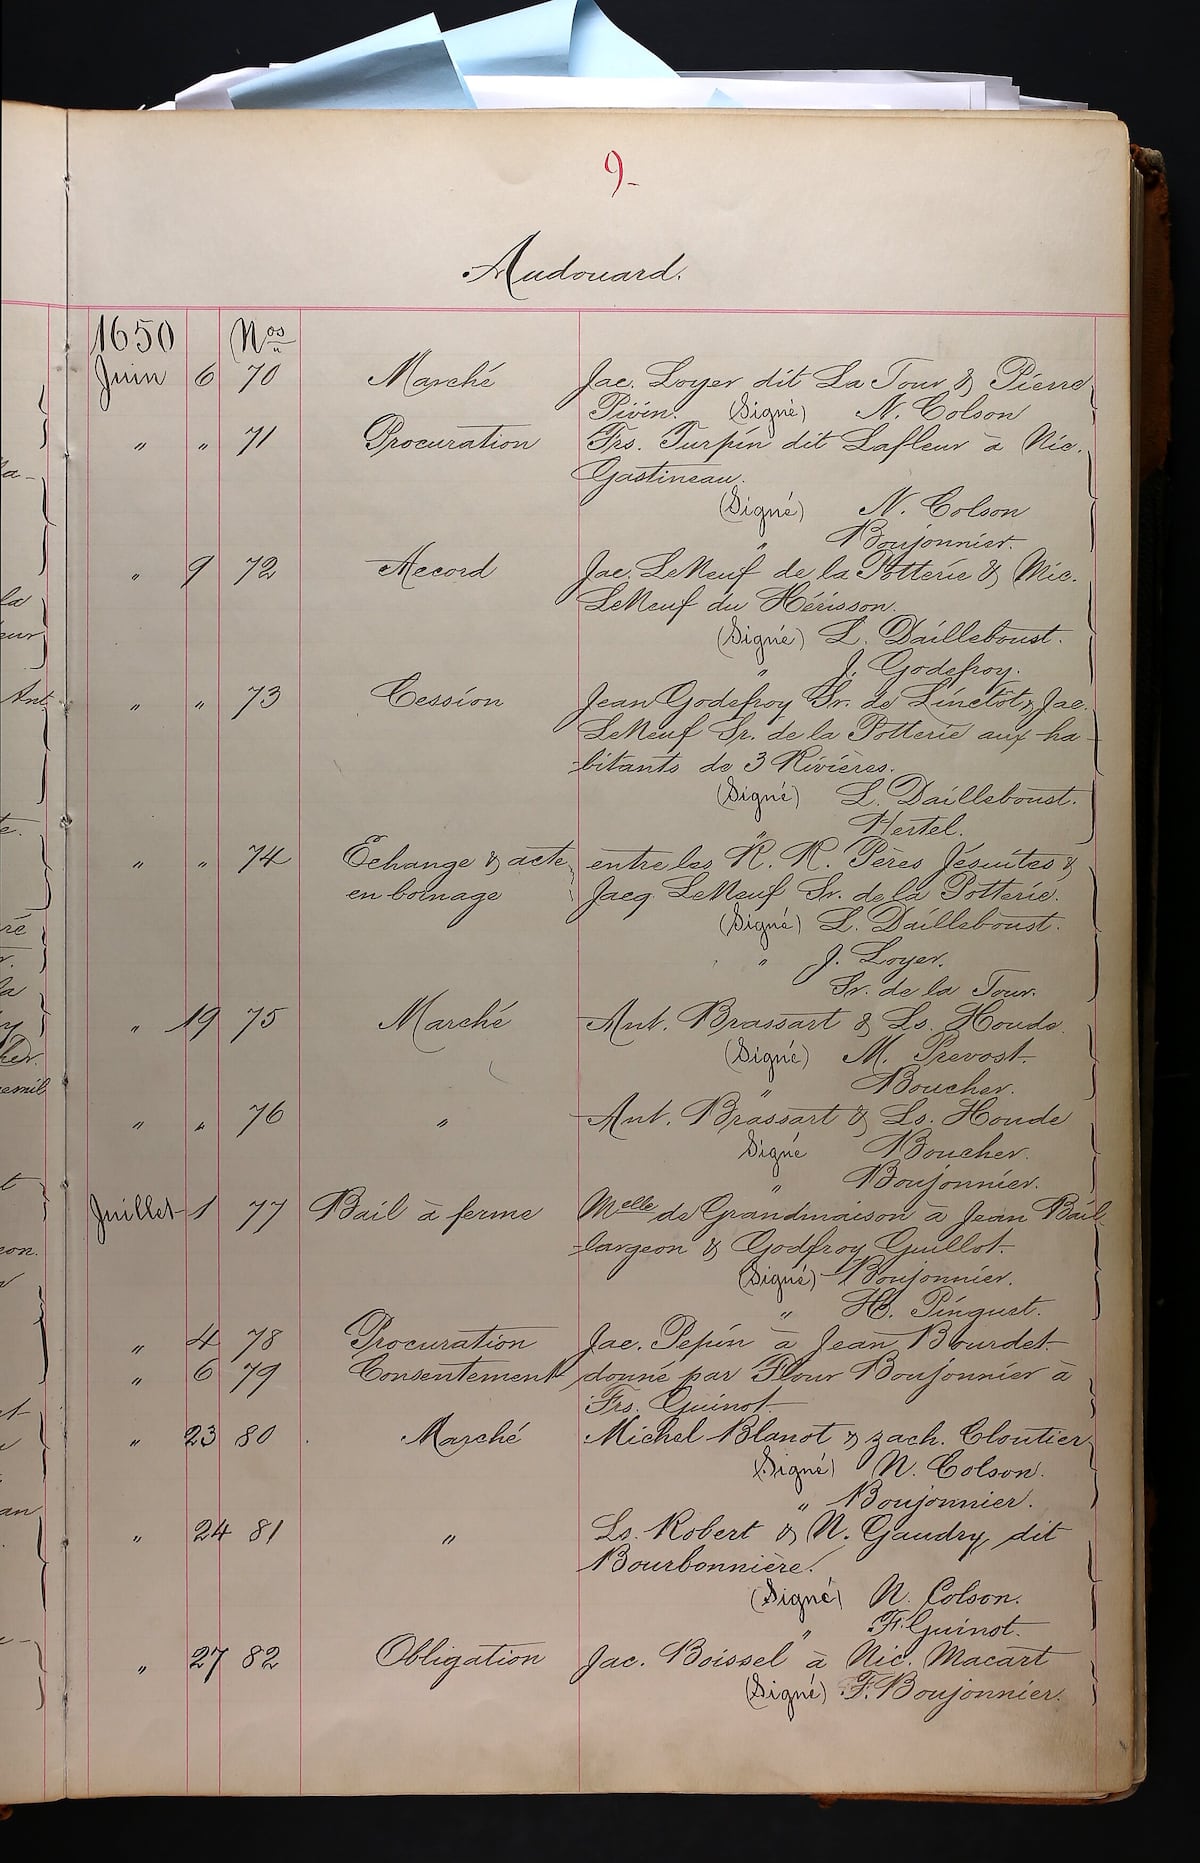 9-
Audouard.
1650 Nos
Juin 6 70 Marché Jac. Loyer dit La Tour & Pierre
Pivin. (Signé) N. Colson
" " 71 Procuration Frs. Turpin dit Lafleur à Nic.
Gastineau.
(Signé) N. Colson
" Boujonnier.
" 9 72 Accord Jac. LeNeuf de la Potterie & Mic.
LeNeuf du Hérisson.
(Signé) L. Dailleboust.
" J. Godefroy.
" " 73 Cession Jean Godefroy Sr. de Linctôt & Jac.
LeNeuf Sr. de la Potterie aux ha-
bitants de 3 Rivières.
(Signé) L. Dailleboust.
" Hertel.
" " 74 Echange & acte entre les R. R. Pères Jésuites &
en bornage Jacq LeNeuf Sr. de la Potterie.
(Signé) L. Dailleboust.
" J. Loyer.
Sr. de la Tour.
" 19 75 Marché Ant. Brassart & Ls. Houde.
(Signé) M. Prevost.
" Boucher.
" " 76 " Ant. Brassart & Ls. Houde
Signé Boucher.
" Boujonnier.
Juillet 1 77 Bail à ferme Melle de Grandmaison à Jean Bail
largeon & Godfroy Guillot.
(Signé) Boujonnier.
" H. Pinguet.
" 4 78 Procuration Jac. Pepin à Jean Bourdet.
" 6 79 Consentement donné par Flour Boujonnier à
Frs. Guinot.
" 23 80 Marché Michel Blanot & Zach. Cloutier
(Signé) N. Colson.
" Boujonnier.
" 24 81 " Ls. Robert & N. Gaudry, dit
Bourbonnière.
(Signé) N. Colson.
" F. Guinot.
" 27 82 Obligation Jac. Boissel à Nic. Macart
(Signé) F. Boujonnier.